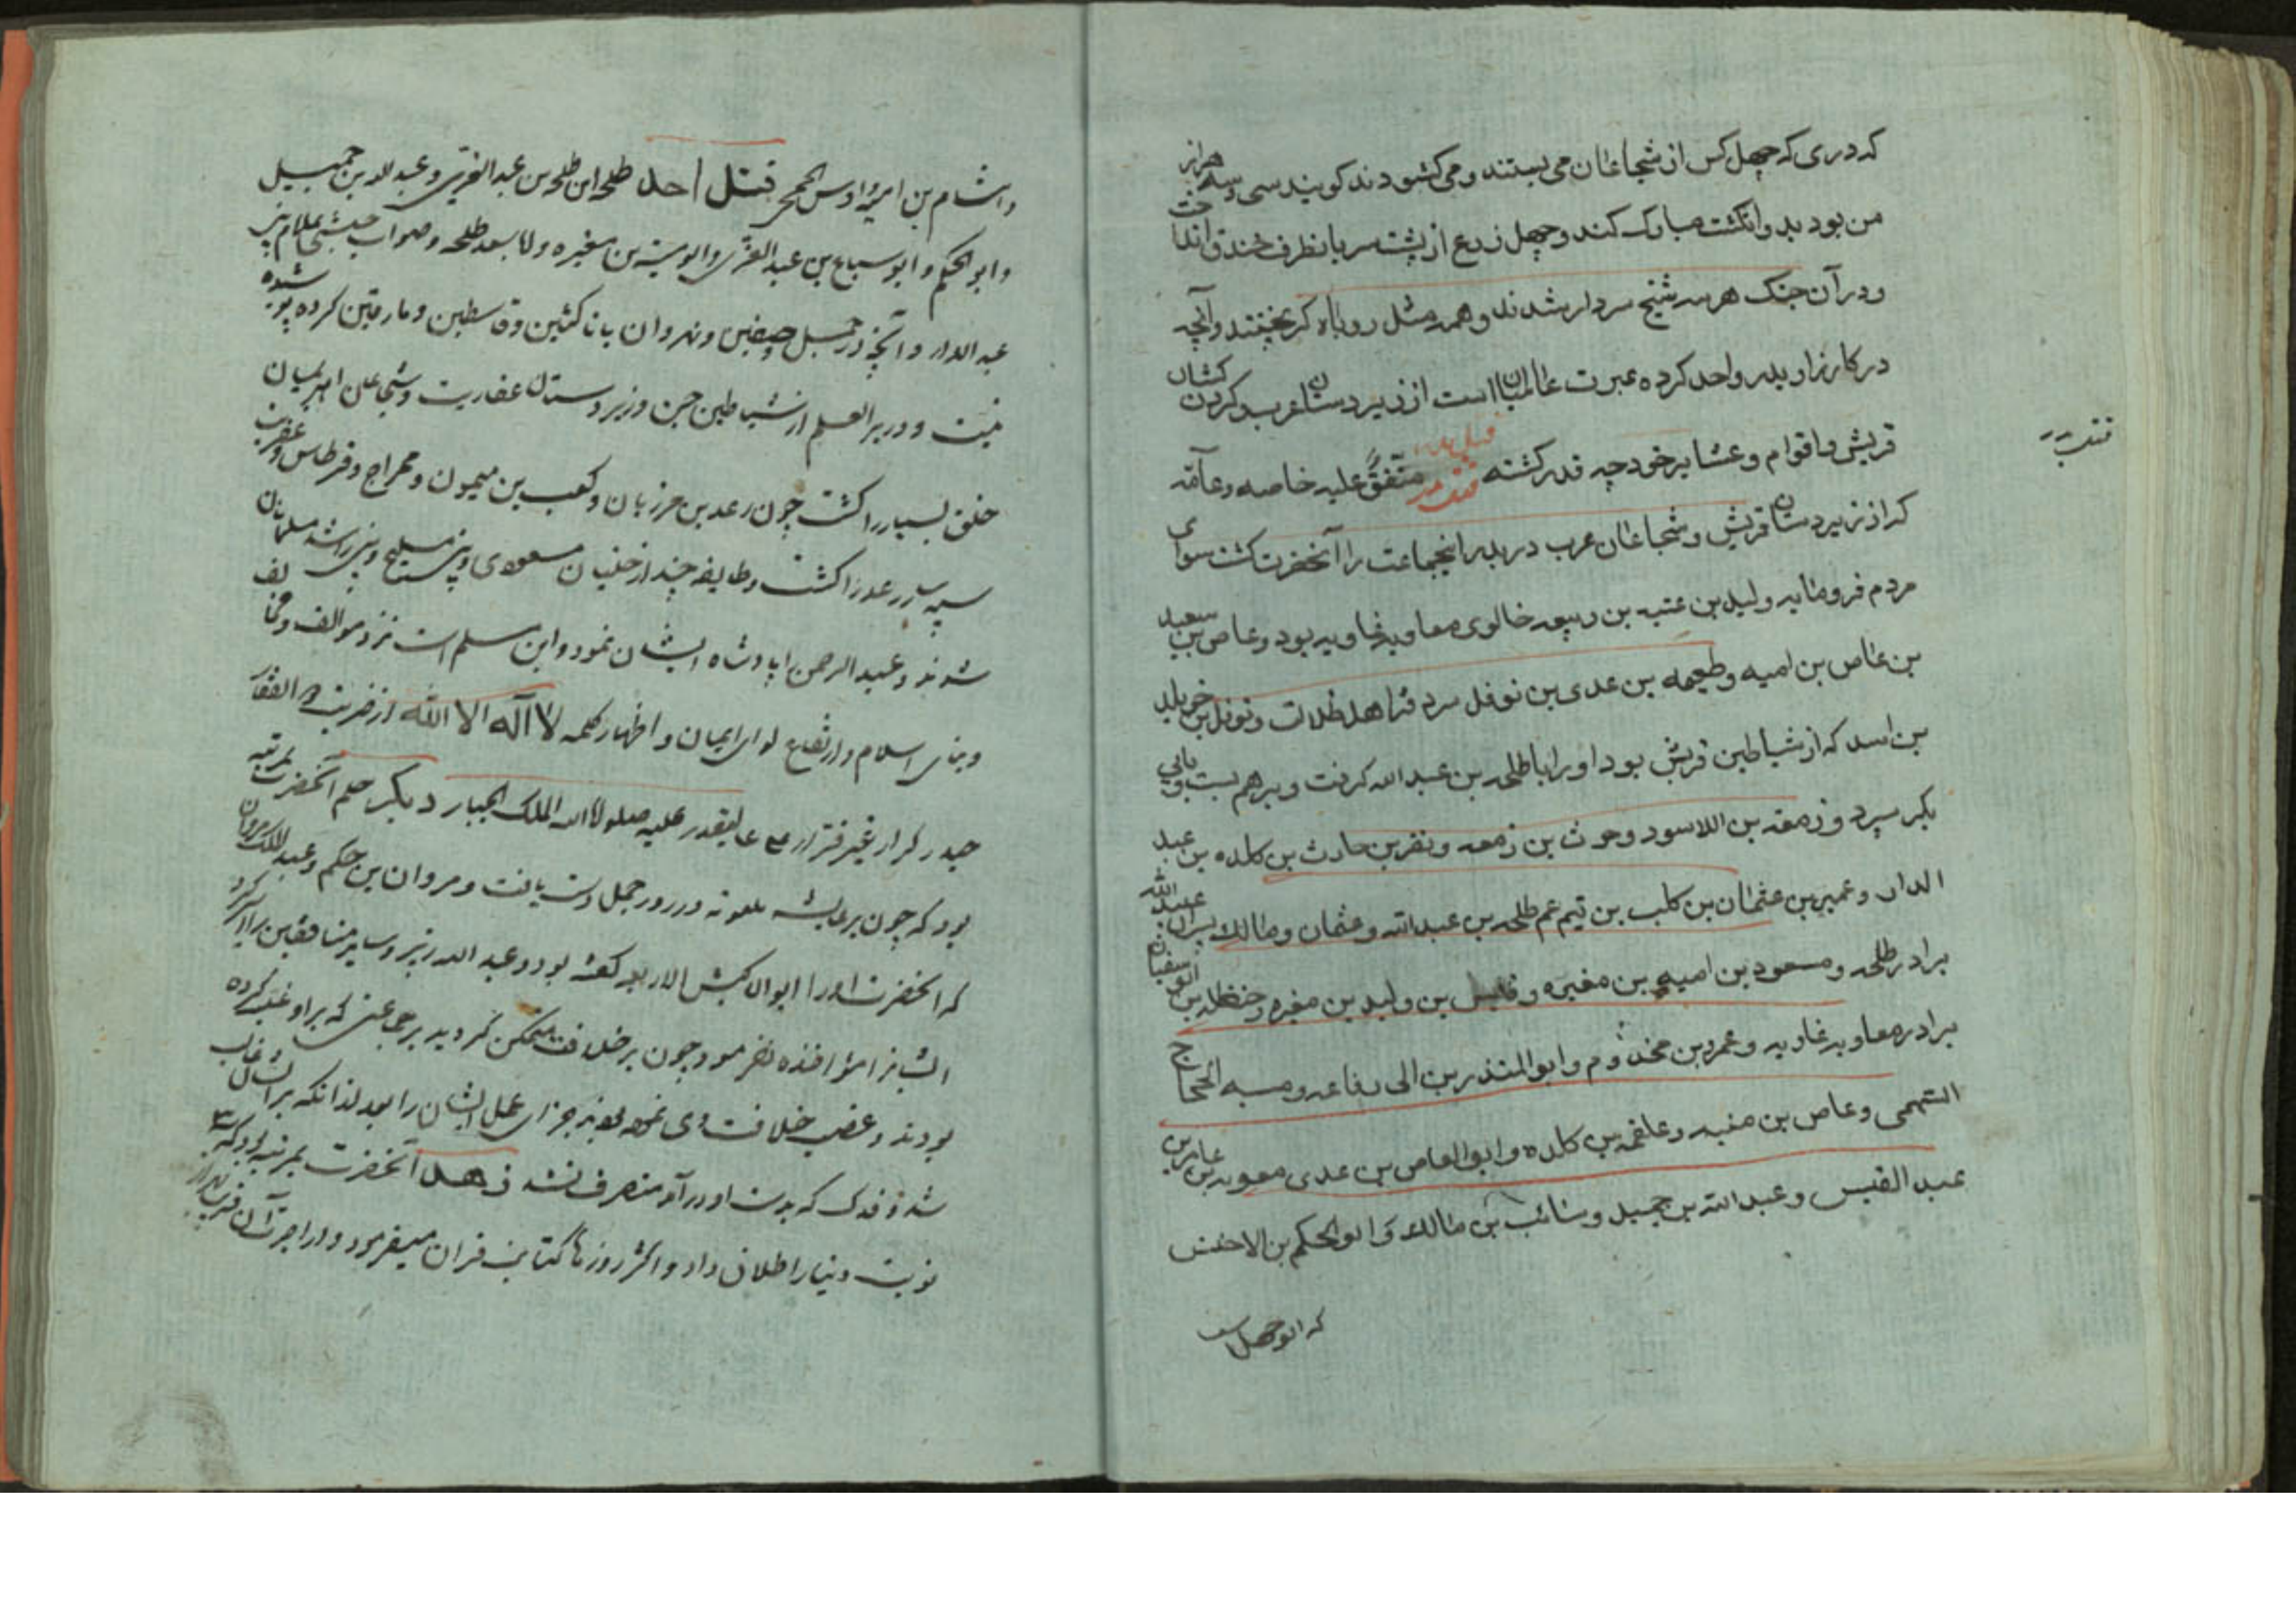 که دری که چهل کس از شجاعان می بستند و می کشودند کویند سی و سه هزار
من بود بد و انکشت مبارک کند و چهل ذرع از پشت سر بانطرف خندق انداخت
و در آن جنک هر سه شیخ سردار شدند و همه مثل روباه کریختند و آنچه
در کارزار بدر و احد کرده عبرت عالمیان است از زبردستان عرب و کردن کشان
قریش و اقوام و عشایر خود چه قدر کشته متفق علیه خاصه و عامه
که از زبردستان قریش و شجاعان عرب در بدر اینجماعت را آنحضرت کشت سوای
مردم فرومایه ولید بن عتبه بن ربیعه خالوی معاویه غاویه بود و عاص بن سعید
بن عاص بن امیه و طعیمه بن عدی بن نوفل سرد فترا هل ظلالت و نوفل بن خویلد
بن اسد که از شیاطین قریش بود او را با طلحه بن عبد الله کرفت و بر هم بست و بابی
بکر سپرد و زمعه بن اللاسود و حوث بن زمعه و نفر بن حارث بن کلده بن عبد
الدار و عمیر بن عثمان بن کلب بن تیم عم طلحه بن عبد الله و عثمان و مالک پسران عبید الله
برادر طلحه و مسعود بن امیه بن مغیره و قیس بن ولید بن مغیره و حنظله بن ابو سفیان
برادر معاویه غاویه و عمرو بن مخذوم و ابو المنذر بن ابی رفاعه و مسبه الحجاج
التهمی و عاص بن منبه و علقمه بن کلده و ابو العاص بن عدی معویه بن عامر بن
عبد القیس و عبد الله بن جمیل و سائب بن مالک و ابو الحکم بن الاخنس
که ابو جهل
و اشام بن امیه و اوس الجمحی قتل احد طلحه ابن طلحه بن عبد العزی و عبد الله بن جمیل
و ابو الحکم و ابو سباع بن عبد العزی و ابو امیه بن مغیره و لا بسعد طلحه و صواب حبشی غلام بنی
عبد الدار و آنچه در جمل و صفین و نهروان با ناکثین و قاسطین و مارقین کرده پوشیده
نیست و در بئر العلم از شیاطین جن و زبردستان عفاریت و شجاعان
خلق بسیار را کشت چون رعد بن مرزبان و کعب بن میمون و معراج و قرطاس و عفریت
سپه سالار رعد را کشت و طایفه چند از جنیان مسلمان
شدند و عبد الرحمن را پادشاه ایشان نمود و این مسلم است نزد موالف و مخالف
و بنای اسلام و ارتفاع لوای ایمان و اظهار کلمه لا اله الا الله از ضربت ذو الفقار
حیدر کرار غیر فرار علیه صلوة الله الملک الجبار دیکر حلم آنحضرت بمرتبه
بود که چون بر عایشه ملعونه در روز جمل دست یافت و مروان بن حکم و عبد الملک مروان
که انحضرت او را ابو الاکبش الاربعه کفته بود و عبد الله زبیر و سایر منافقین را
ایشانرا مؤاخذه نفرمود و چون بر خلافت متمکن کردید بر جماعتی که بر او غلبه کرده
بودند و غصب خلافت وی نموده بودند جزای عمل ایشان را
شد و فدک که بدست او در آمد متصرف نشد زهد آنحضرت بمرتبه بود که سه
نوبت دنیا را طلاق داد و اکثر روزها کتابت قران میفرمود و در اجرت آن